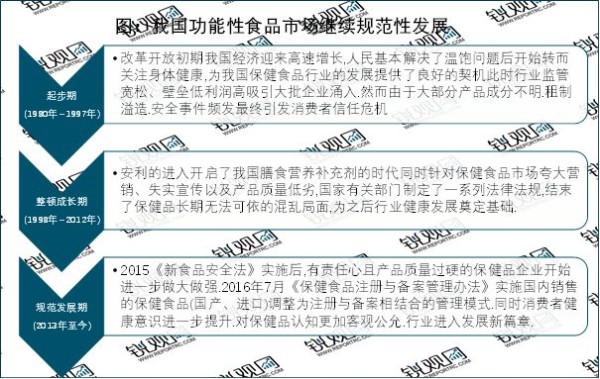 图：我国功能性食品市场继续规范性发展
起步期
(1980年-1997年)
•改革开放初期我国经济迎来高速增长,人民基本解决了温饱问题后开始转而
关注身体健康,为我国保健食品行业的发展提供了良好的契机此时行业监管
宽松、壁垒低利润高吸引大批企业涌入.然而由于大部分产品成分不明.粗制
溢造.安全事件频发最终引发消费者信任危机
整顿成长期
(1998年-2012年)
•安利的进入开启了我国膳食营养补充剂的时代同时针对保健食品市场夸大营
销、失实宣传以及产品质量低劣,国家有关部门制定了一系列法律法规,结束
了保健品长期无法可依的混乱局面,为之后行业健康发展奠定基础.
规范发展期
(2013年至今)
•2015《新食品安全法》实施后,有责任心且产品质量过硬的保健品企业开始
进一步做大做强.2016年7月《保健食品注册与备案管理办法》实施国内销售
的保健食品(国产、进口)调整为注册与备案相结合的管理模式.同时消费者健
康意识进一步提升.对保健品认知更加客观公允.行业进入发展新篇章.
锐观网
WWW.REPORTRC.COM